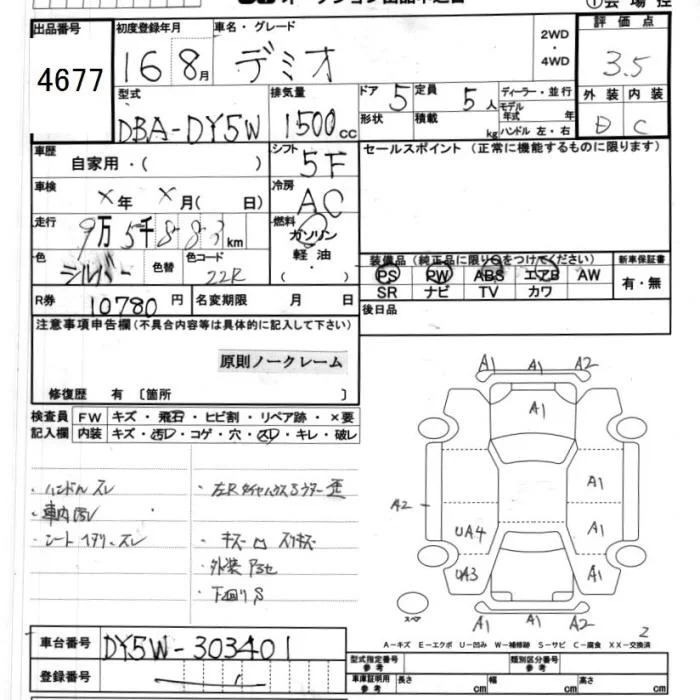 出品番号 初度登録年月 車名・グレード 2WD・4WD 評価点
4677 16 8月 デミオ 3.5
型式 排気量 ドア 5 定員 5人 ディーラー・並行 外装 内装
DBA-DY5W 1500cc 形状 積載 kg モデル年式 年 ハンドル 左・右 D C
車歴 自家用・( ) シフト 5F セールスポイント (正常に機能するものに限ります)
車検 × 年 × 月( 日) 冷房 AC
走行 9万5千883km 燃料 ガソリン 軽油 ( ・ )
色 シルバー 色替 色コード 22R
装備品(純正品に限り○をつけてください) 新車保証書
PS PW ABS エアB AW 有・無
SR ナビ TV カワ
R券 10780円 名変期限 月 日 後日品
注意事項申告欄(不具合内容等は具体的に記入して下さい)
原則ノークレーム
修復歴 有 〔箇所 〕
検査員 FW キズ・飛石・ヒビ割・リペア跡・×要
記入欄 内装 キズ・汚レ・コゲ・穴・スレ・キレ・破レ
・ハンドルスレ
・車内汚レ
・シートヘタリ、スレ
・キズ凹スリキズ
・下回りS
A1 A1 A2
A1
A1
A2 UA4 A1
UA3 A1
スペア A1 A1 A2
2
A-キズ E-エクボ U-凹み W-補修跡 S-サビ C-腐食 XX-交換済
車台番号 DY5W-303401
登録番号
型式指定番号 参考 類別区分番号 参考
車庫証明用 参考 長さ cm 幅 cm 高さ cm